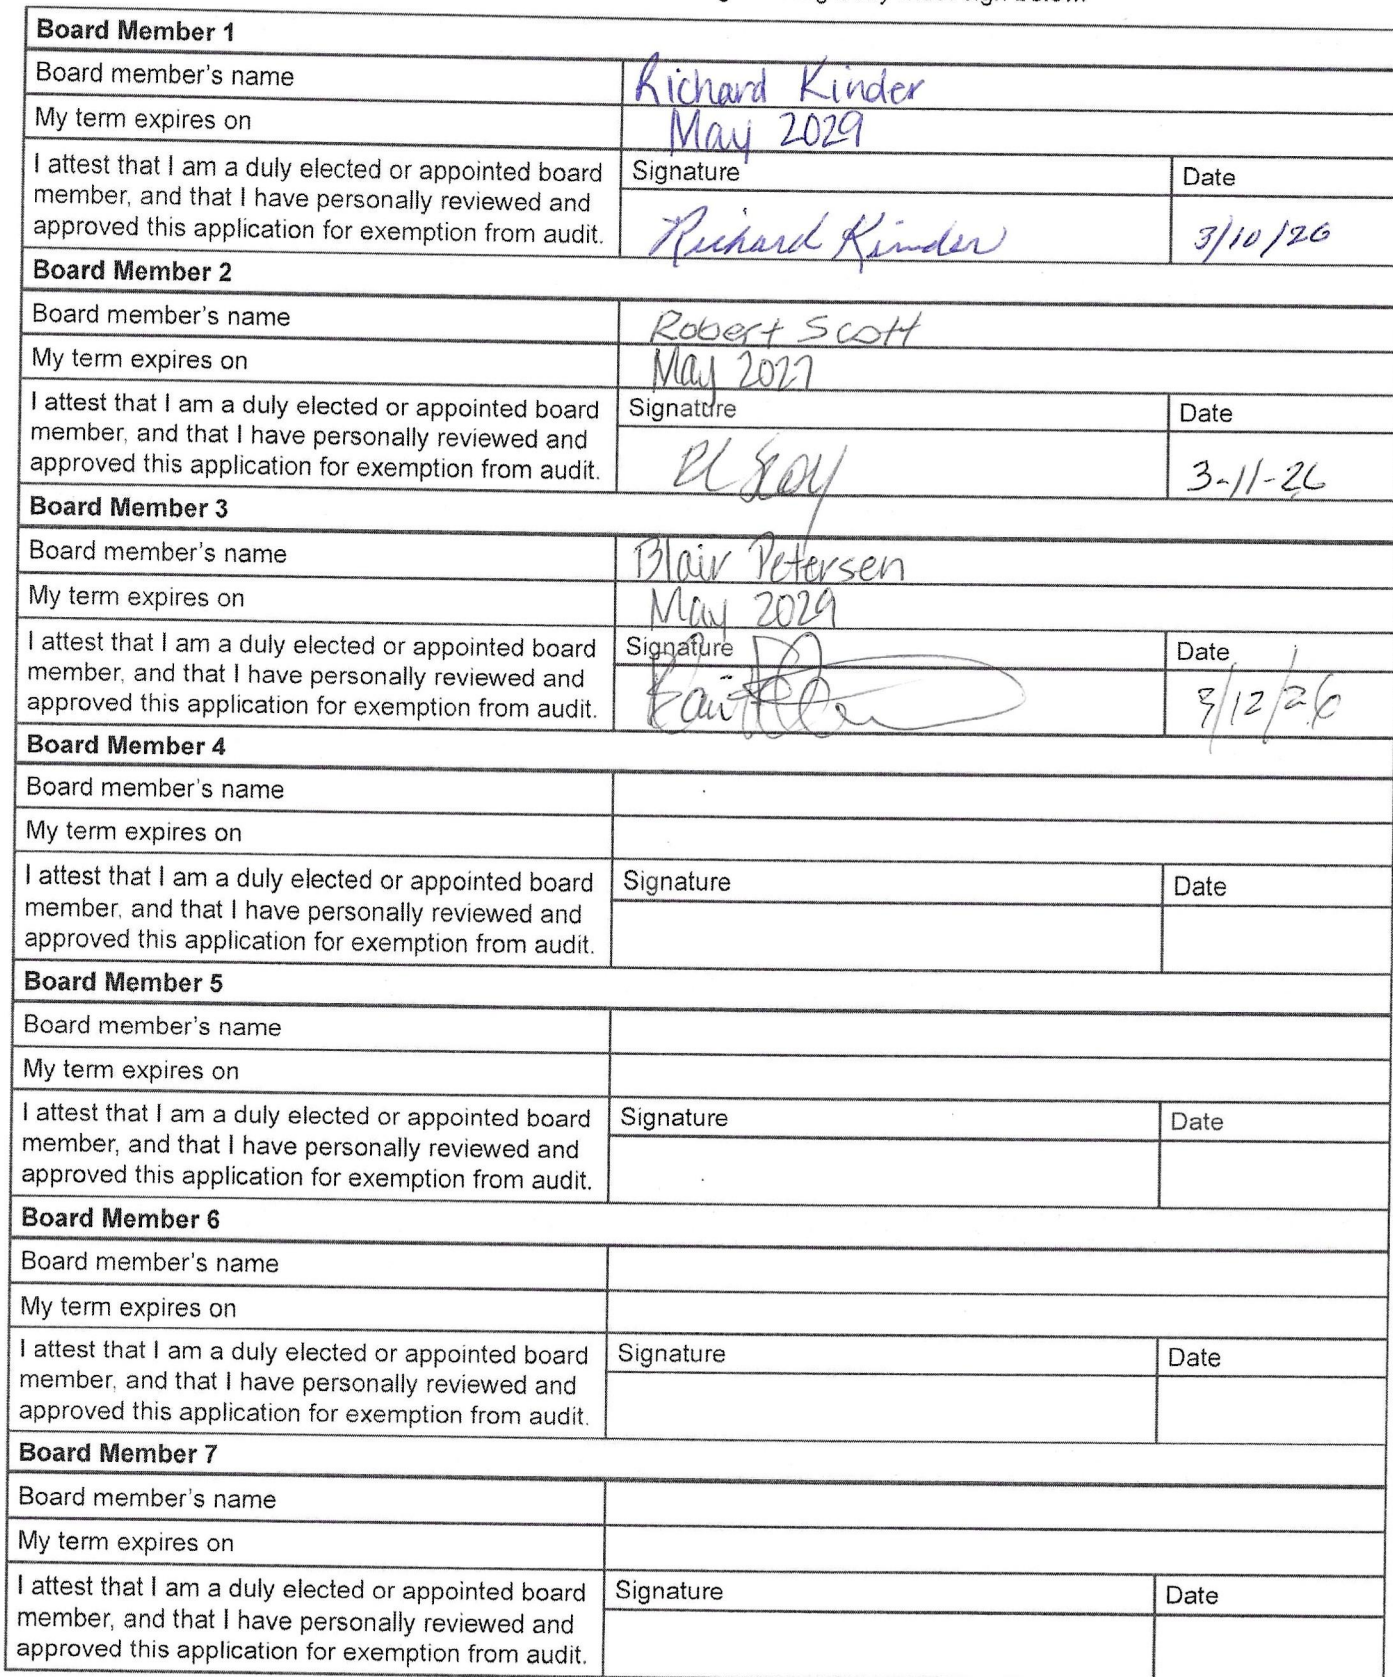 Board Member 1
Board member's name Richard Kinder
My term expires on May 2029
I attest that I am a duly elected or appointed board
member, and that I have personally reviewed and
approved this application for exemption from audit.
Signature Date
Richard Kinder 3/10/26
Board Member 2
Board member's name Robert Scott
My term expires on May 2027
I attest that I am a duly elected or appointed board
member, and that I have personally reviewed and
approved this application for exemption from audit.
Signature Date
3-11-26
Board Member 3
Board member's name Blair Petersen
My term expires on May 2029
I attest that I am a duly elected or appointed board
member, and that I have personally reviewed and
approved this application for exemption from audit.
Signature Date
3/12/26
Board Member 4
Board member's name
My term expires on
I attest that I am a duly elected or appointed board
member, and that I have personally reviewed and
approved this application for exemption from audit.
Signature Date
Board Member 5
Board member's name
My term expires on
I attest that I am a duly elected or appointed board
member, and that I have personally reviewed and
approved this application for exemption from audit.
Signature Date
Board Member 6
Board member's name
My term expires on
I attest that I am a duly elected or appointed board
member, and that I have personally reviewed and
approved this application for exemption from audit.
Signature Date
Board Member 7
Board member's name
My term expires on
I attest that I am a duly elected or appointed board
member, and that I have personally reviewed and
approved this application for exemption from audit.
Signature Date